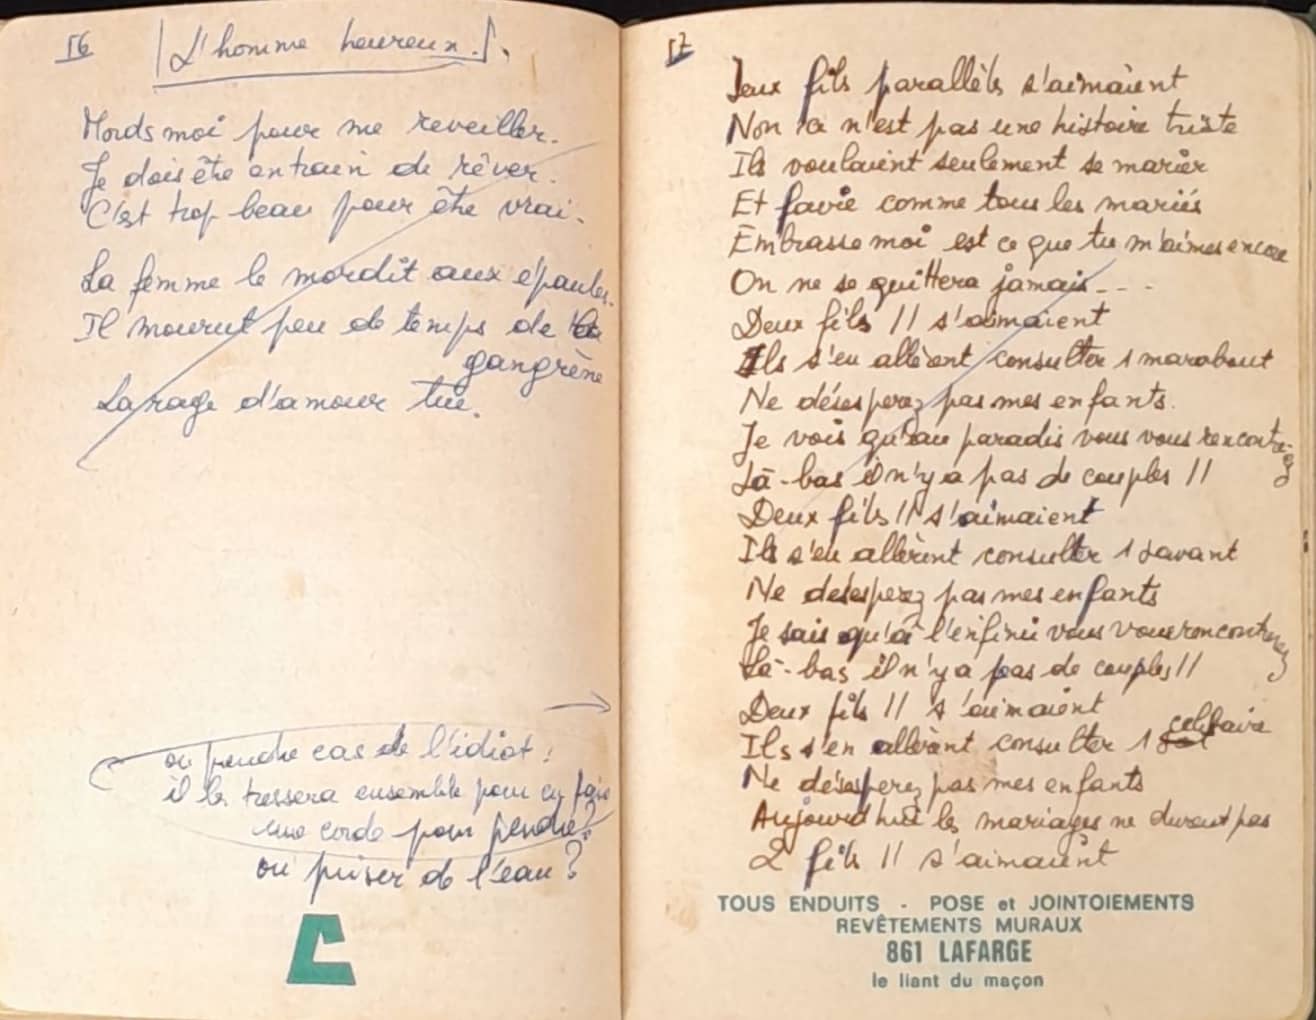 56
L'homme heureux.
Mords moi pour me reveiller.
Je dois être entrain de rêver.
C'est trop beau pour être vrai.
La femme le mordit aux épaules.
Il mourut peu de temps de la
gangrène
La rage d'amour tue.
ou prendre cas de l'idiot :
il les tressera ensemble pour en faire
une corde pour pendre ?
ou puiser de l'eau ?
57
Deux fils parallèls s'aimaient
Non ça n'est pas une histoire triste
Ils voulaient seulement se marier
Et favie comme tous les mariés
Embrasse moi est ce que tu m'aimes encore
On ne se quittera jamais - - -
Deux fils // s'aimaient
Ils s'en allèrent consulter 1 marabout
Ne désesperez pas mes enfants.
Je vois qu'au paradis vous vous rencontrez
Là-bas il n'y a pas de couples //
Deux fils // s'aimaient
Ils s'en allèrent consulter 1 savant
Ne desesperez pas mes enfants
Je sais qu'à l'enfinii vous vous rencontrez
Là-bas il n'y a pas de couples //
Deux fils // s'aimaient
Ils s'en allèrent consulter 1 celibaire
Ne désesperez pas mes enfants
Aujourd'hui les mariages ne durent pas
2 fils // s'aimaient
TOUS ENDUITS - POSE et JOINTOIEMENTS
REVÊTEMENTS MURAUX
861 LAFARGE
le liant du maçon